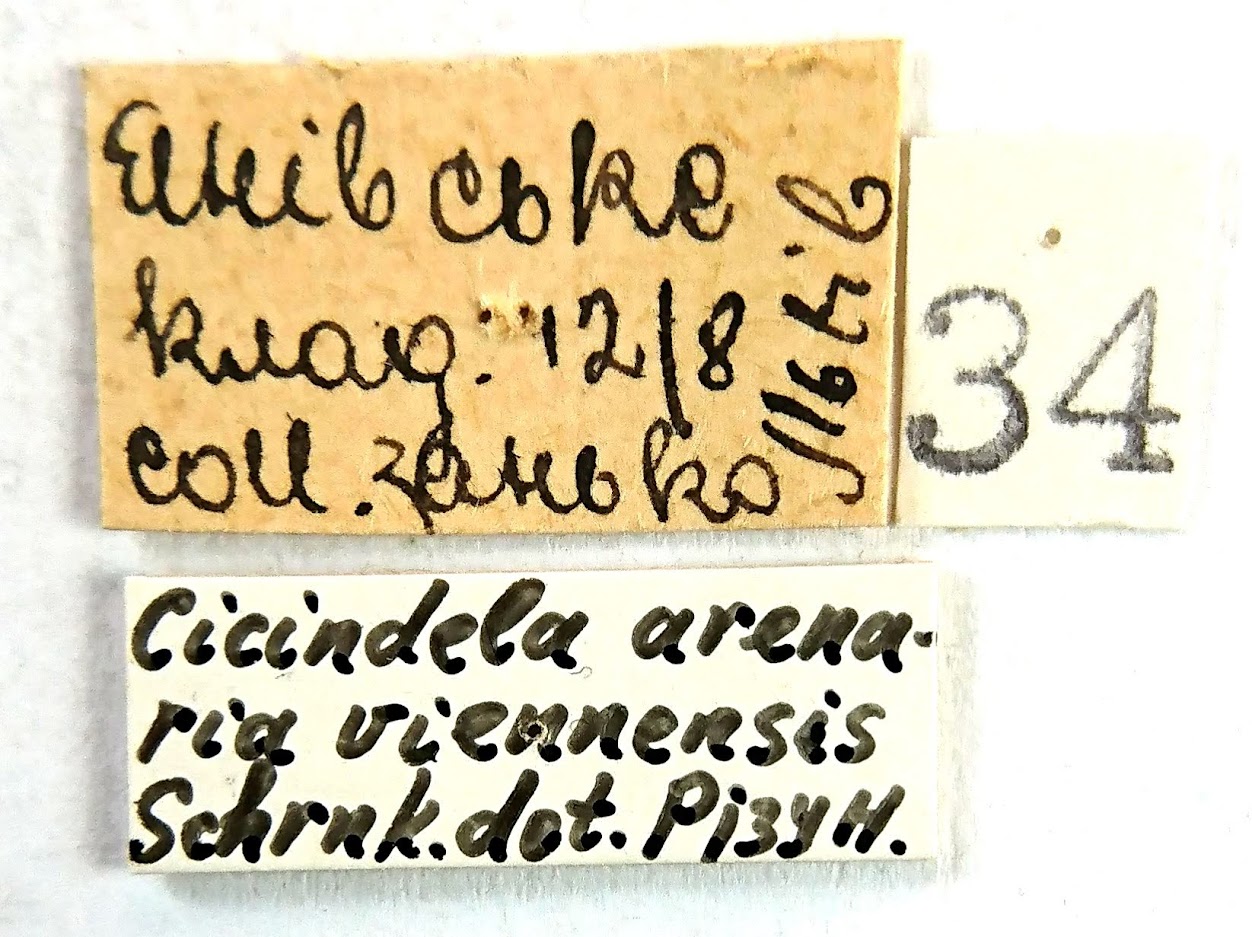 Єнівське
клад. 12/8
coll. Занько
34
Cicindela arena-
ria viennensis
Schrnk. dot. Різун.